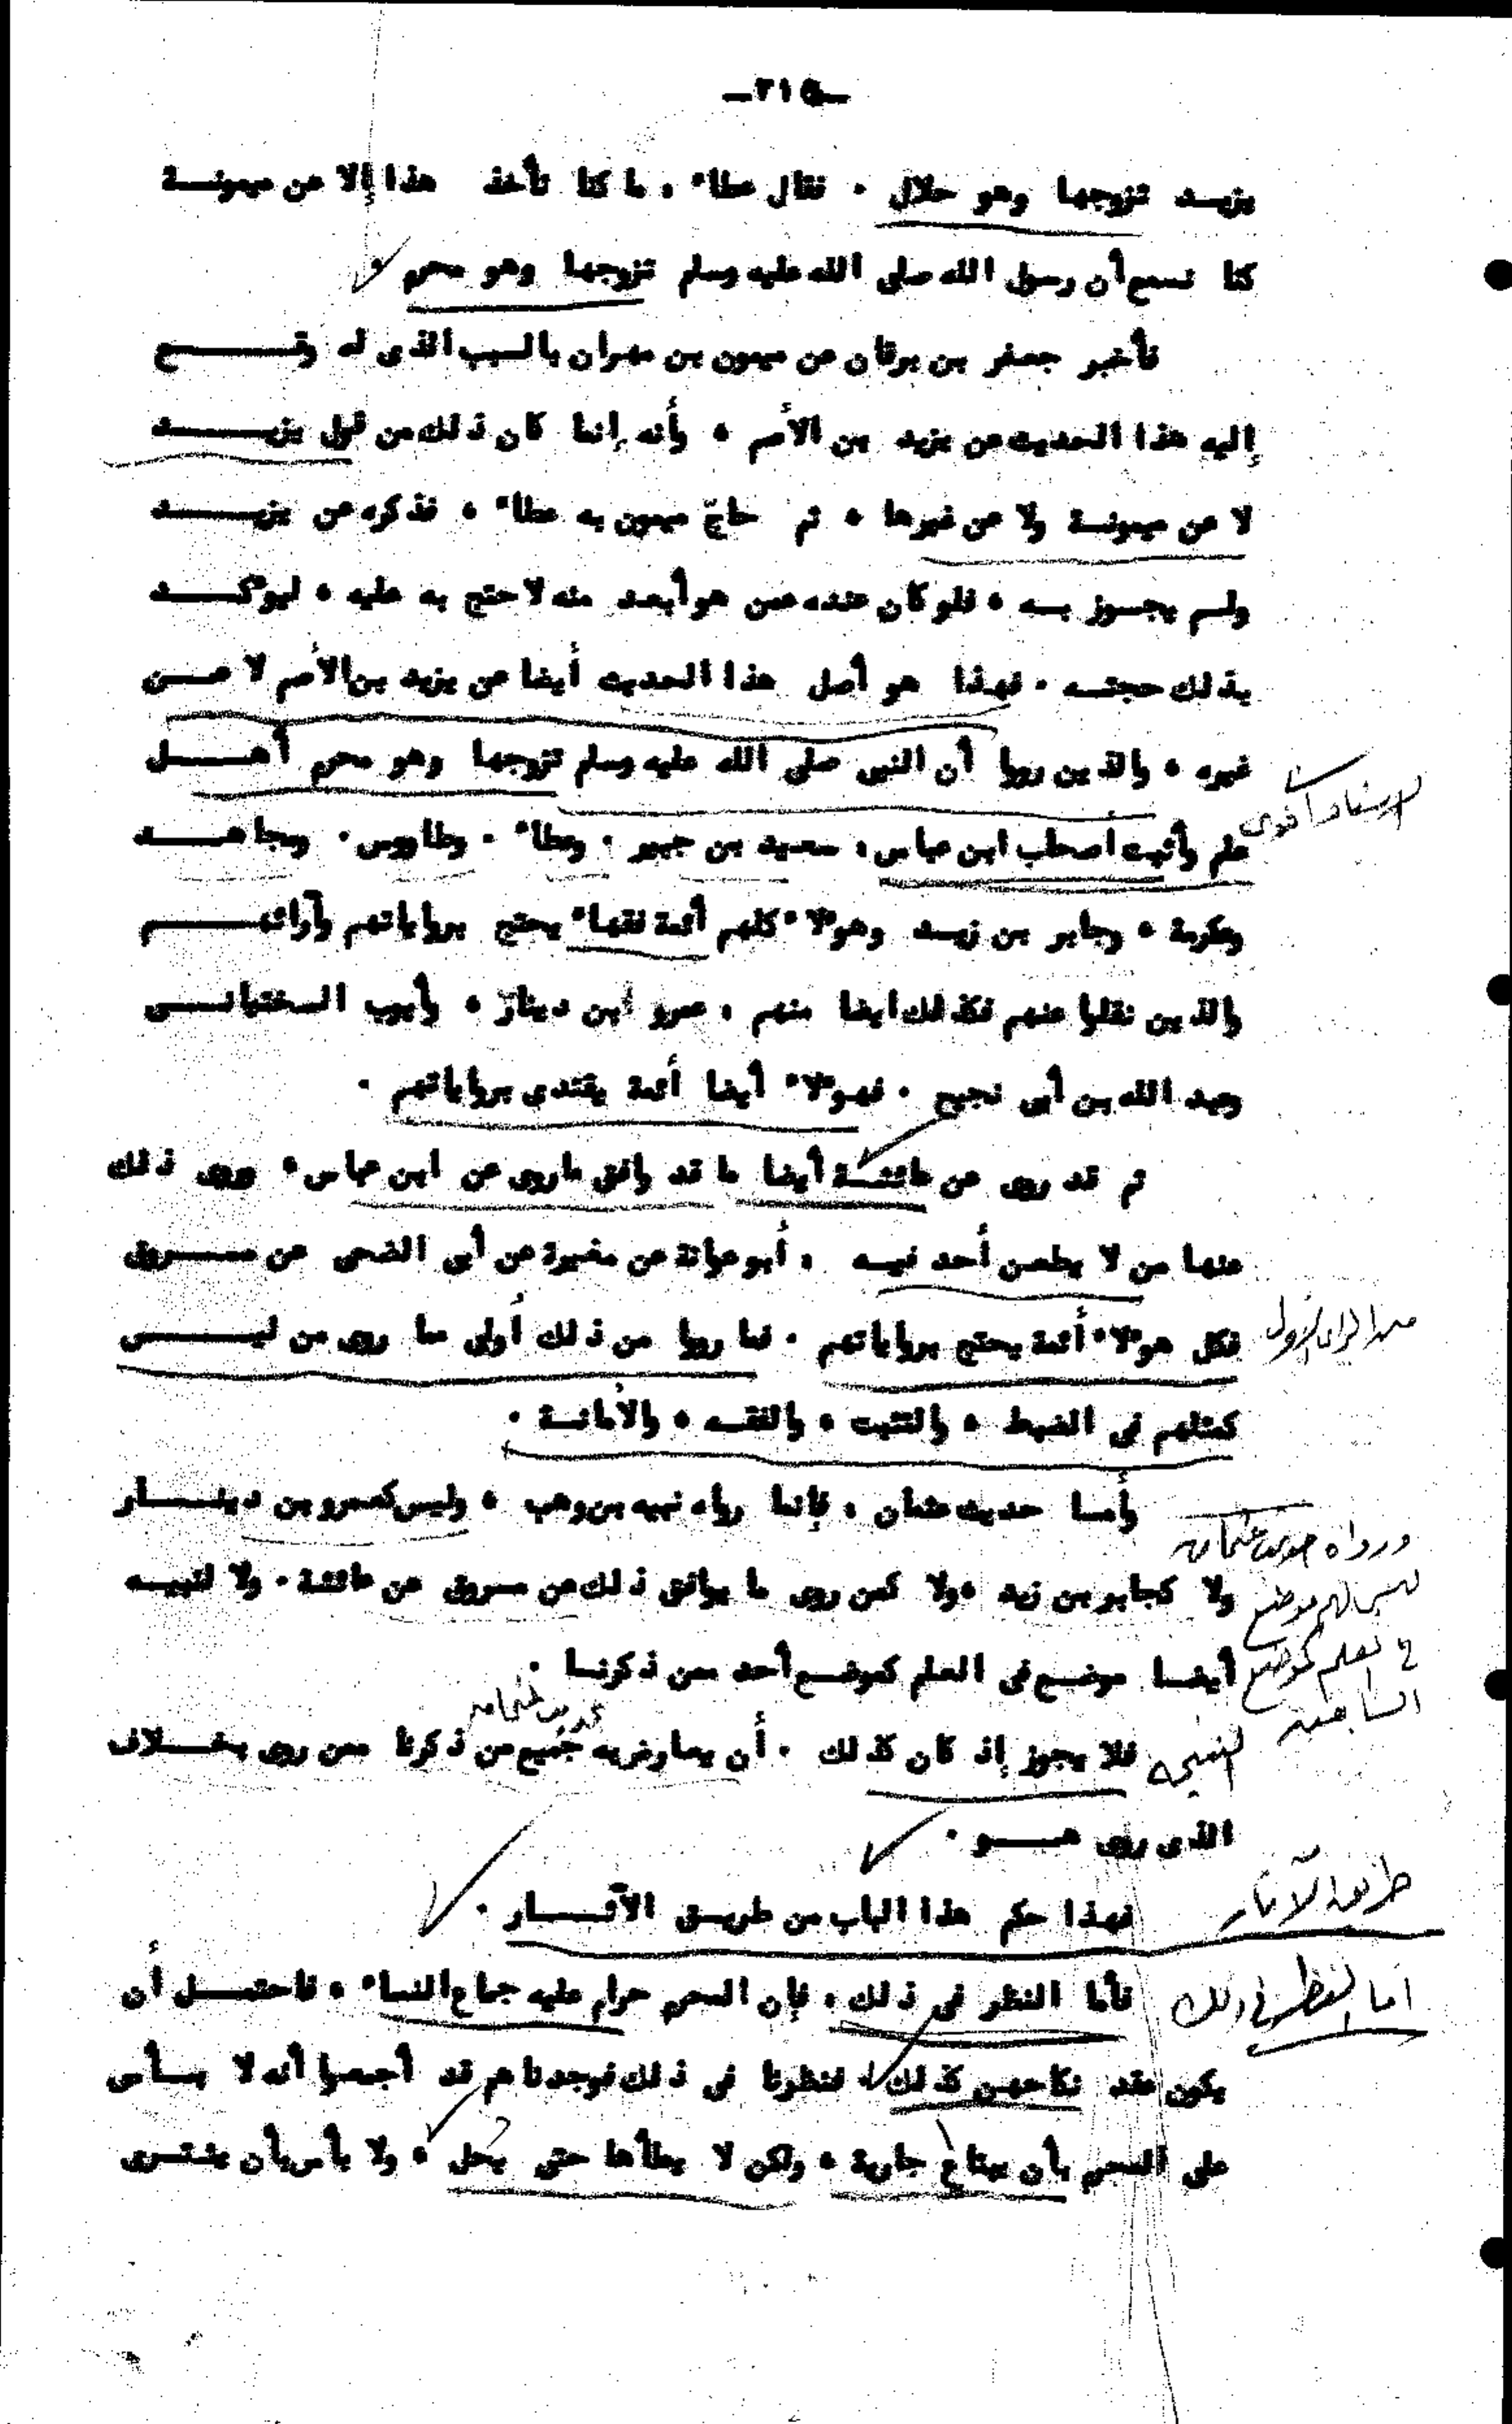 ـ٢١٥ـ
يزيد تزوجها وهو حلال . فقال عطاء . ما كنا نأخذ هذا إلا عن ميمونة
كنا نسمع أن رسول الله صلى الله عليه وسلم تزوجها وهو محرم .
فأخبر جعفر بن برقان عن ميمون بن مهران بالسبب الذى له وقع
إليه هذا الحديث عن يزيد بن الأصم ، وأنه إنما كان ذلك من قول يزيد
لا عن ميمونة ولا عن غيرها ، ثم حاجّ ميمون به عطاء ، فذكره عن يزيد
ولم يجوز به ، فلو كان عنده عمن هو أبعد منه لاحتج به عليه ، ليؤكد
بذلك حجته . فهذا هو أصل هذا الحديث أيضا عن يزيد بن الأصم لا عن
غيره ، والذين رووا أن النبى صلى الله عليه وسلم تزوجها وهو محرم أهل
الإسناد أقوى
علم وأثبت أصحاب ابن عباس، سعيد بن جبير . وعطاء . وطاووس . ومجاهد
وعكرمة ، وجابر بن زيد وهؤلاء كلهم أئمة فقهاء يحتج برواياتهم وآرائهم
والذين نقلوا عنهم فكذلك ايضا منهم ، عمرو ابن دينار ، وأيوب السختيانى
وعبد الله بن أبى نجيح . فهؤلاء أيضا أئمة يقتدى برواياتهم .
ثم قد روى عن عائشة أيضا ما قد وافق ماروى عن ابن عباس ، وروى ذلك
عنها من لا يطعن أحد فيه ، أبو عوانة عن مغيرة عن أبى الضحى عن مسروق
فكل هؤلاء أئمة يحتج برواياتهم . فما رووا من ذلك أولى مما روى من ليس
كمثلهم فى الضبط ، والتثبت ، والفقه ، والأمانة .
وأما حديث عثمان ، فإنما رواه نبيه بن وهب ، وليس كعمرو بن دينار
ورواه حديث عثمان
ولا كجابر بن زيد ،ولا كمن روى ما يوافق ذلك عن مسروق عن عائشة . ولا لنبيه
ليس لهم موضع
أيضا موضع فى العلم كموضع أحد ممن ذكرنا .
فى العلم كموضع
السابقين
فلا يجوز إذ كان كذلك . أن يعارض به جميع من ذكرنا ممن روى بخلاف
النتيجة
الذى روى هو .
فهذا حكم هذا الباب من طريق الآثار .
طريق الآثار
فأما النظر فى ذلك ، فإن المحرم حرام عليه جماع النساء ، فاحتمل أن
اما النظر فى ذلك
يكون عقد نكاحهن كذلك ، فنظرنا فى ذلك فوجدناهم قد أجمعوا أنه لا بأس
على المحرم بأن يبتاع جارية ، ولكن لا يطأها حتى يحل ، ولا بأس بأن يشترى